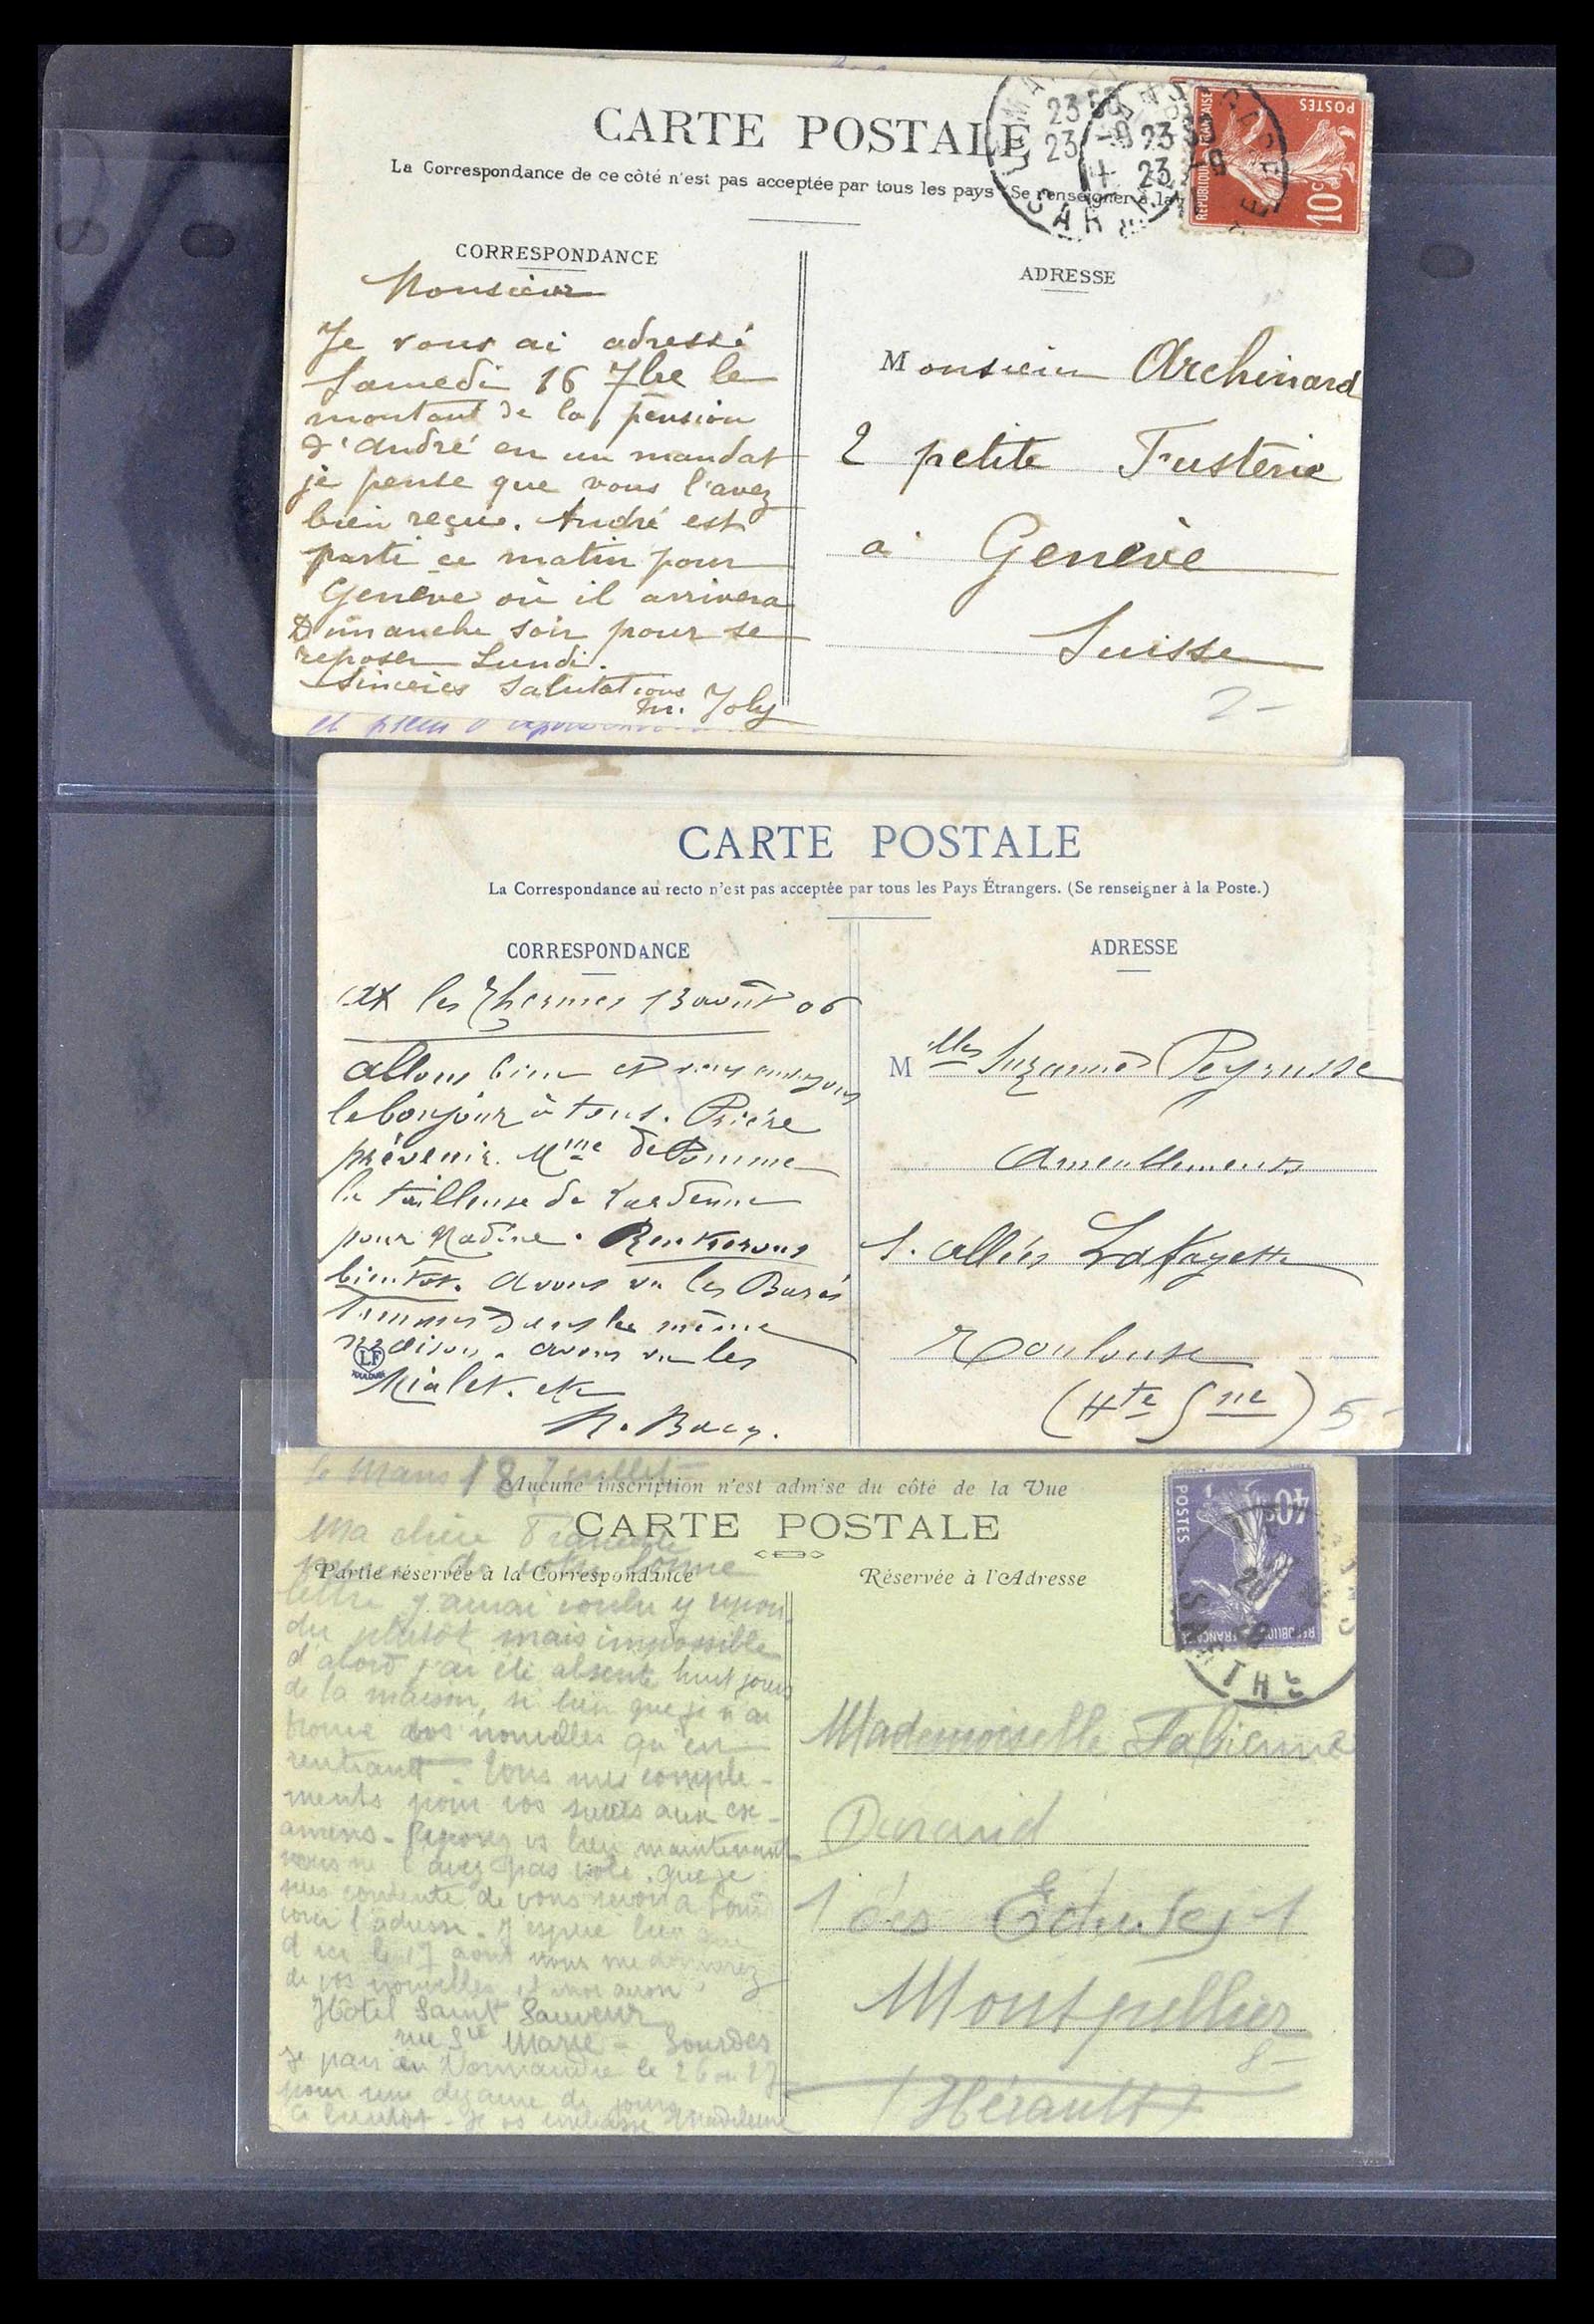 CARTE POSTALE
La Correspondance de ce côté n'est pas acceptée par tous les pays (Se renseigner à la
23
23
-9
23 30
23 -9
REPUBLIQUE FRANÇAISE
POSTES
10c
CORRESPONDANCE
Monsieur
Je vous ai adressé
Samedi 16 7bre le
montant de la pension
d'André en un mandat
je pense que vous l'avez
bien reçue. André est
parti ce matin pour
Genève où il arrivera
Dimanche soir pour se
reposer Lundi.
Sincères Salutations
M. Joly
ADRESSE
Monsieur Archinard
2 petite Fusterie
a Genève
Suisse
2-
CARTE POSTALE
La Correspondance au recto n'est pas acceptée par tous les Pays Étrangers. (Se renseigner à la Poste.)
CORRESPONDANCE
Ax les Thermes 13 août 06
allons bien et vous envoyons
le bonjour à tous. Prière
prévenir Mme de Pomme
la tailleuse de Lardenne
pour Nadine. Rentrerons
bientôt. Avons vu les
sommes dans la même
maison. avons vu les
Mialet. etc
LF
TOULOUSE
ADRESSE
Mlles Suzanne Peyrusse
Ameublements
1. allées Lafayette
Toulouse
(Hte Gne)
5-
Le Mans 18 Juillet
Aucune inscription n'est admise du côté de la Vue
CARTE POSTALE
Partie réservée à la Correspondance
Réservée à l'Adresse
Ma chère
merci de votre bonne
lettre j'aurai voulu y répon
dre plutôt mais impossible
d'abord j'ai été absente huit jours
de la maison, si bien que je n'ai
trouvé vos nouvelles qu'en
rentrant. Tous mes compli-
ments pour vos succès aux ex-
amens. Reposez vs bien maintenant
vous ne l'avez pas volé. que je
suis contente de vous revoir à Lourdes
voici l'adresse. J'espère bien que
d'ici le 17 août vous me donnerez
de vos nouvelles
Hôtel Saint Sauveur
rue Ste Marie - Lourdes
Je pars en Normandie le 26 ou 27
pour une dizaine de jours
à bientôt - je vs embrasse Madeleine
POSTES
40c
REPUBLIQUE FRANÇAISE
SARTHE
Mademoiselle Fabienne
Durand
1 des 1
Montpellier
8-
(Hérault)